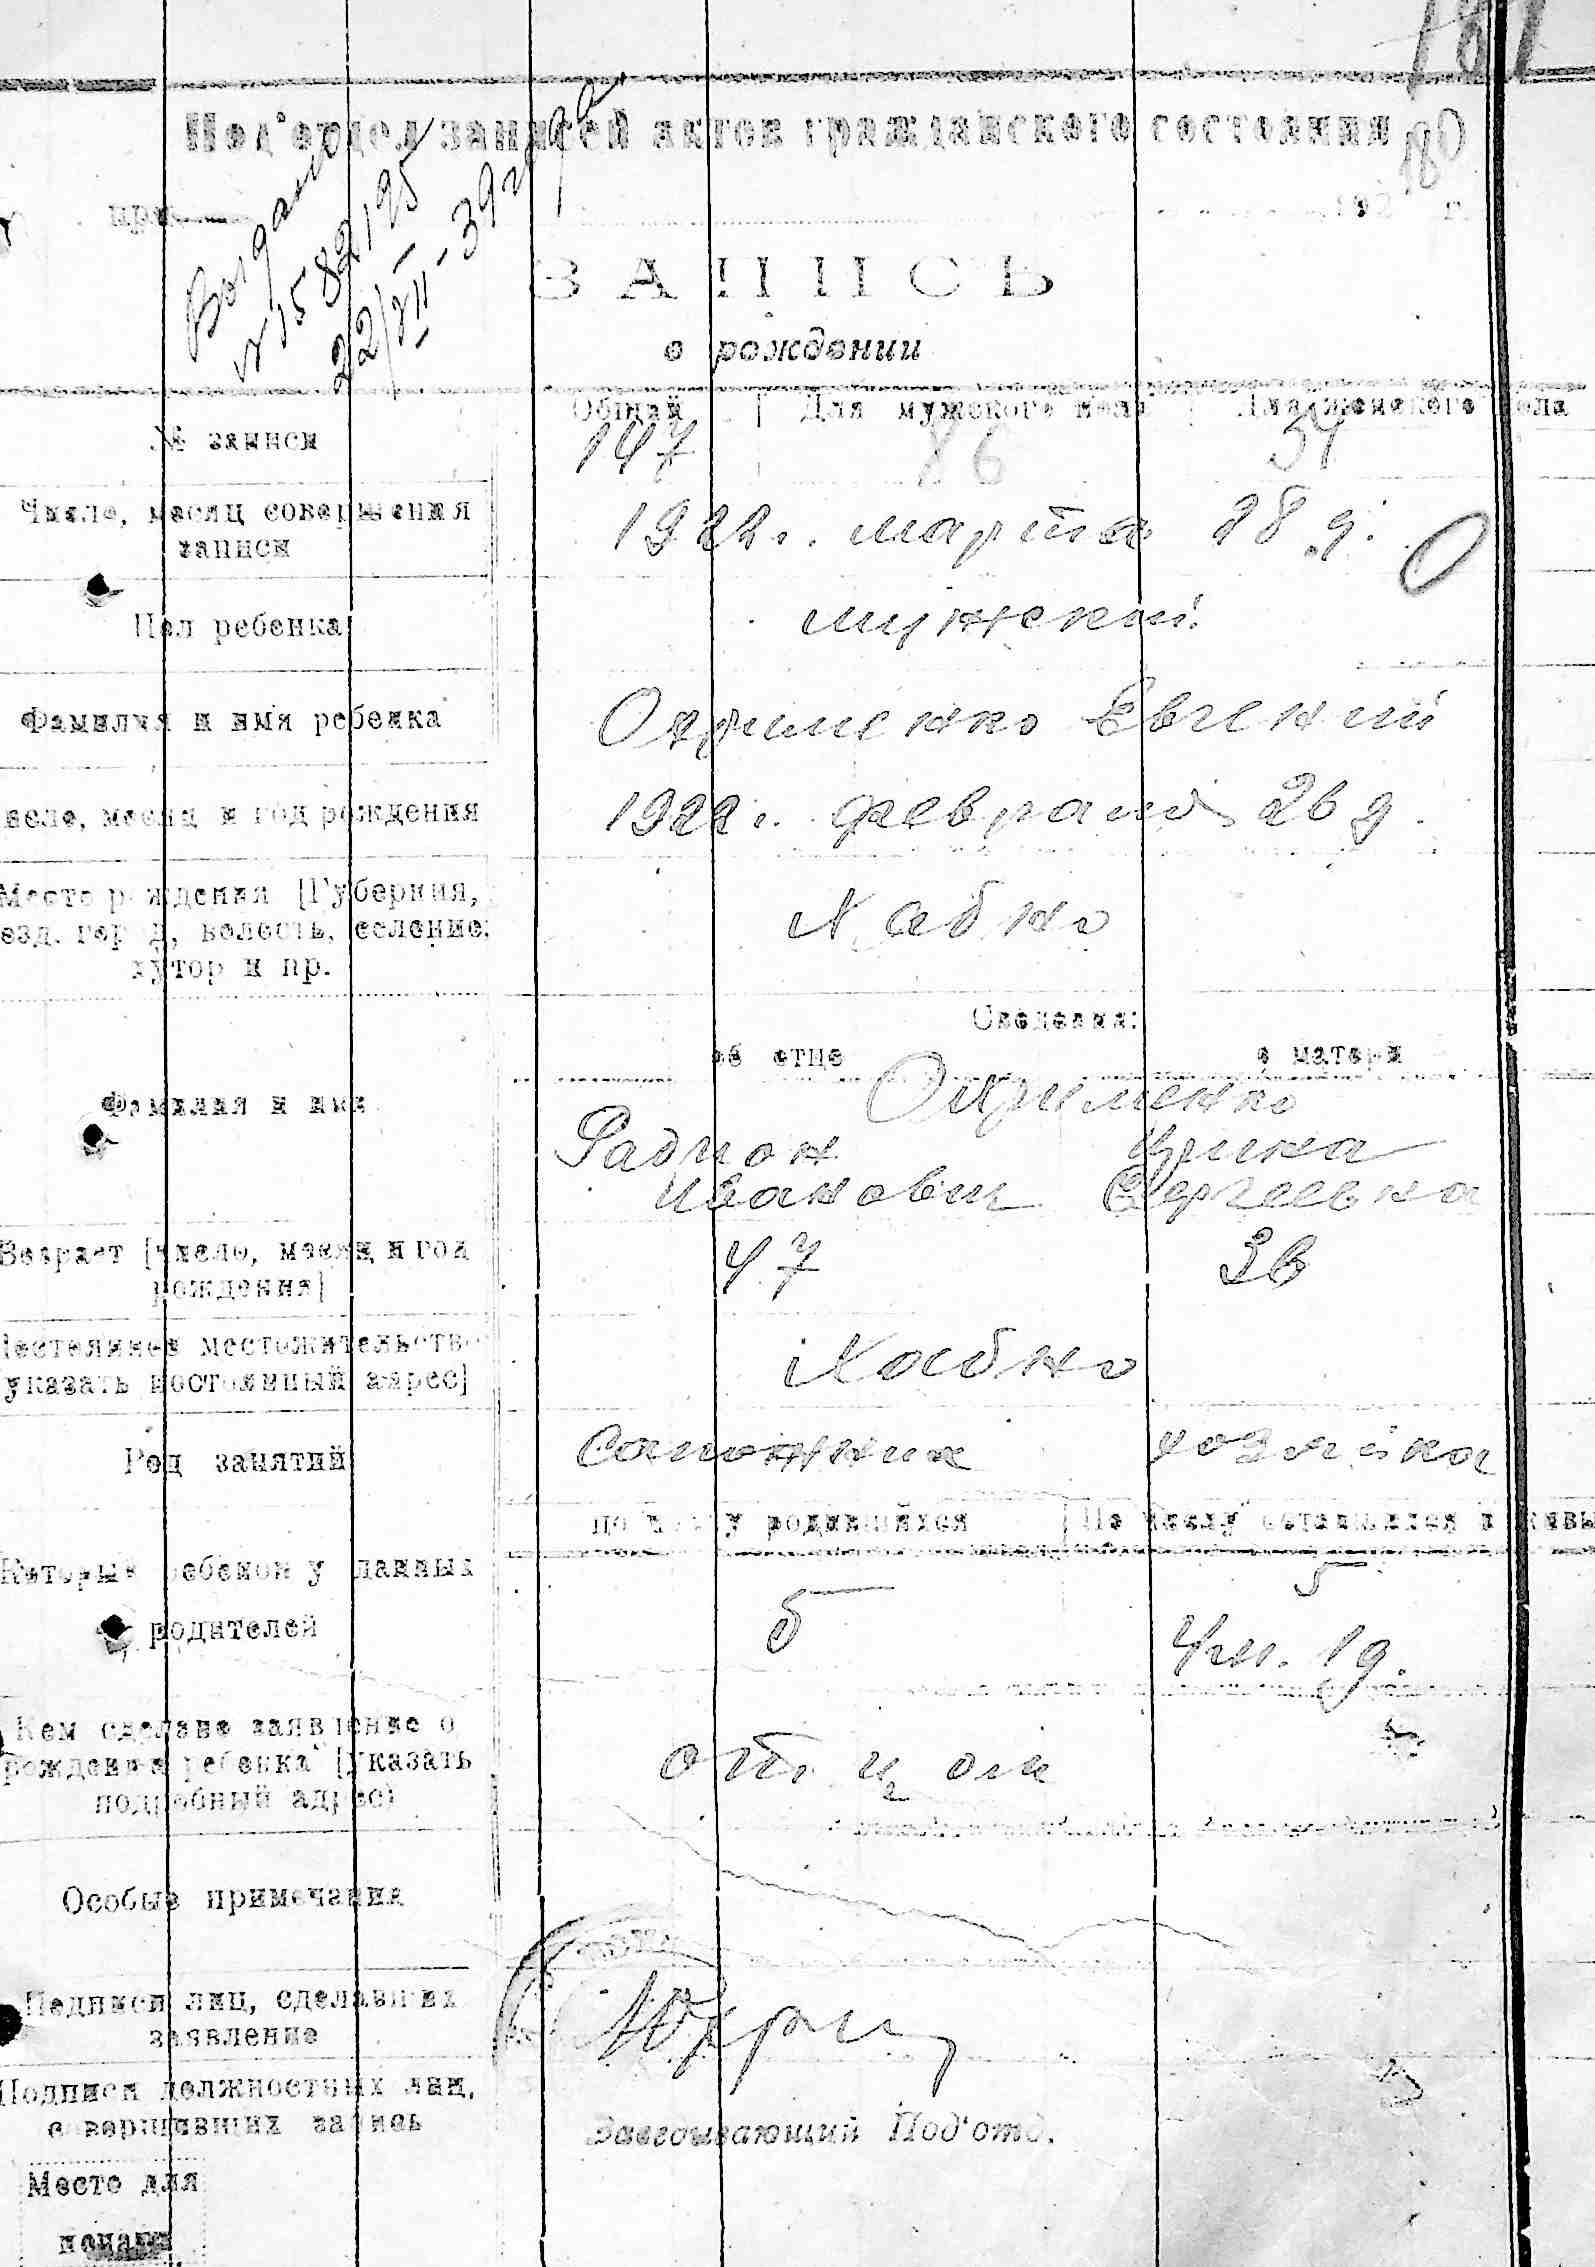 181
180
Под'отдел записей актов гражданского состояния
при
192 г.
№ 1582/195
22/VII-39 г.
ЗАПИСЬ
о рождении
Общий Для мужского пола Для женского пола
№ записи 147 86
Число, месяц совершения 1922 г. марта 28 д.
записи
Пол ребенка мужской.
Фамилия и имя ребенка Охрименко Евгений
число, месяц и год рождения 1922 г. февраля 26 д.
Место рождения [Губерния, Хабно
уезд, город, волость, селение,
хутор и пр.
Сведения:
об отце о матери
Фамилия и имя Охрименко
Радион Ирина
Иванович Сергеевна
Возраст [число, месяц и год 47 36
рождения]
Постоянное местожительство Хабно
указать постоянный адрес]
Род занятий Сапожник хозяйка
по числу родившихся По числу оставшихся в живых
Который ребенок у данных 5 5
родителей 4 м. 1 д.
Кем сделано заявление о отцом
рождении ребенка [указать
подробный адрес)
Особые примечания
Подписи лиц, сделавших
заявление
Подписи должностных лиц,
совершивших запись Заведывающий Под'отд.
Место для
печати